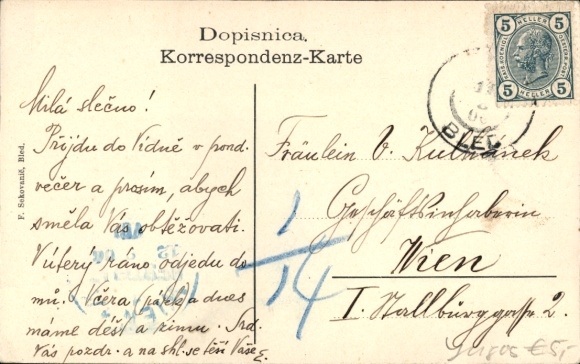 Dopisnica.
Korrespondenz-Karte
5 HELLER 5
5 HELLER 5
BLED
F. Sekovanič, Bled.
Milá slečno!
Přijdu do Vídně v pond.
večer a prosím, abych
směla Vás obtěžovati.
Vúterý ráno odjedu do-
mů. Včera (pátek) a dnes
máme déšť a zimu. Srd.
Vás pozdr. a na shl. se těší Vaše
Fräulein V.
Geschäftsinhaberin
Wien
I. Stallburggasse 2.
1/14
€5,-